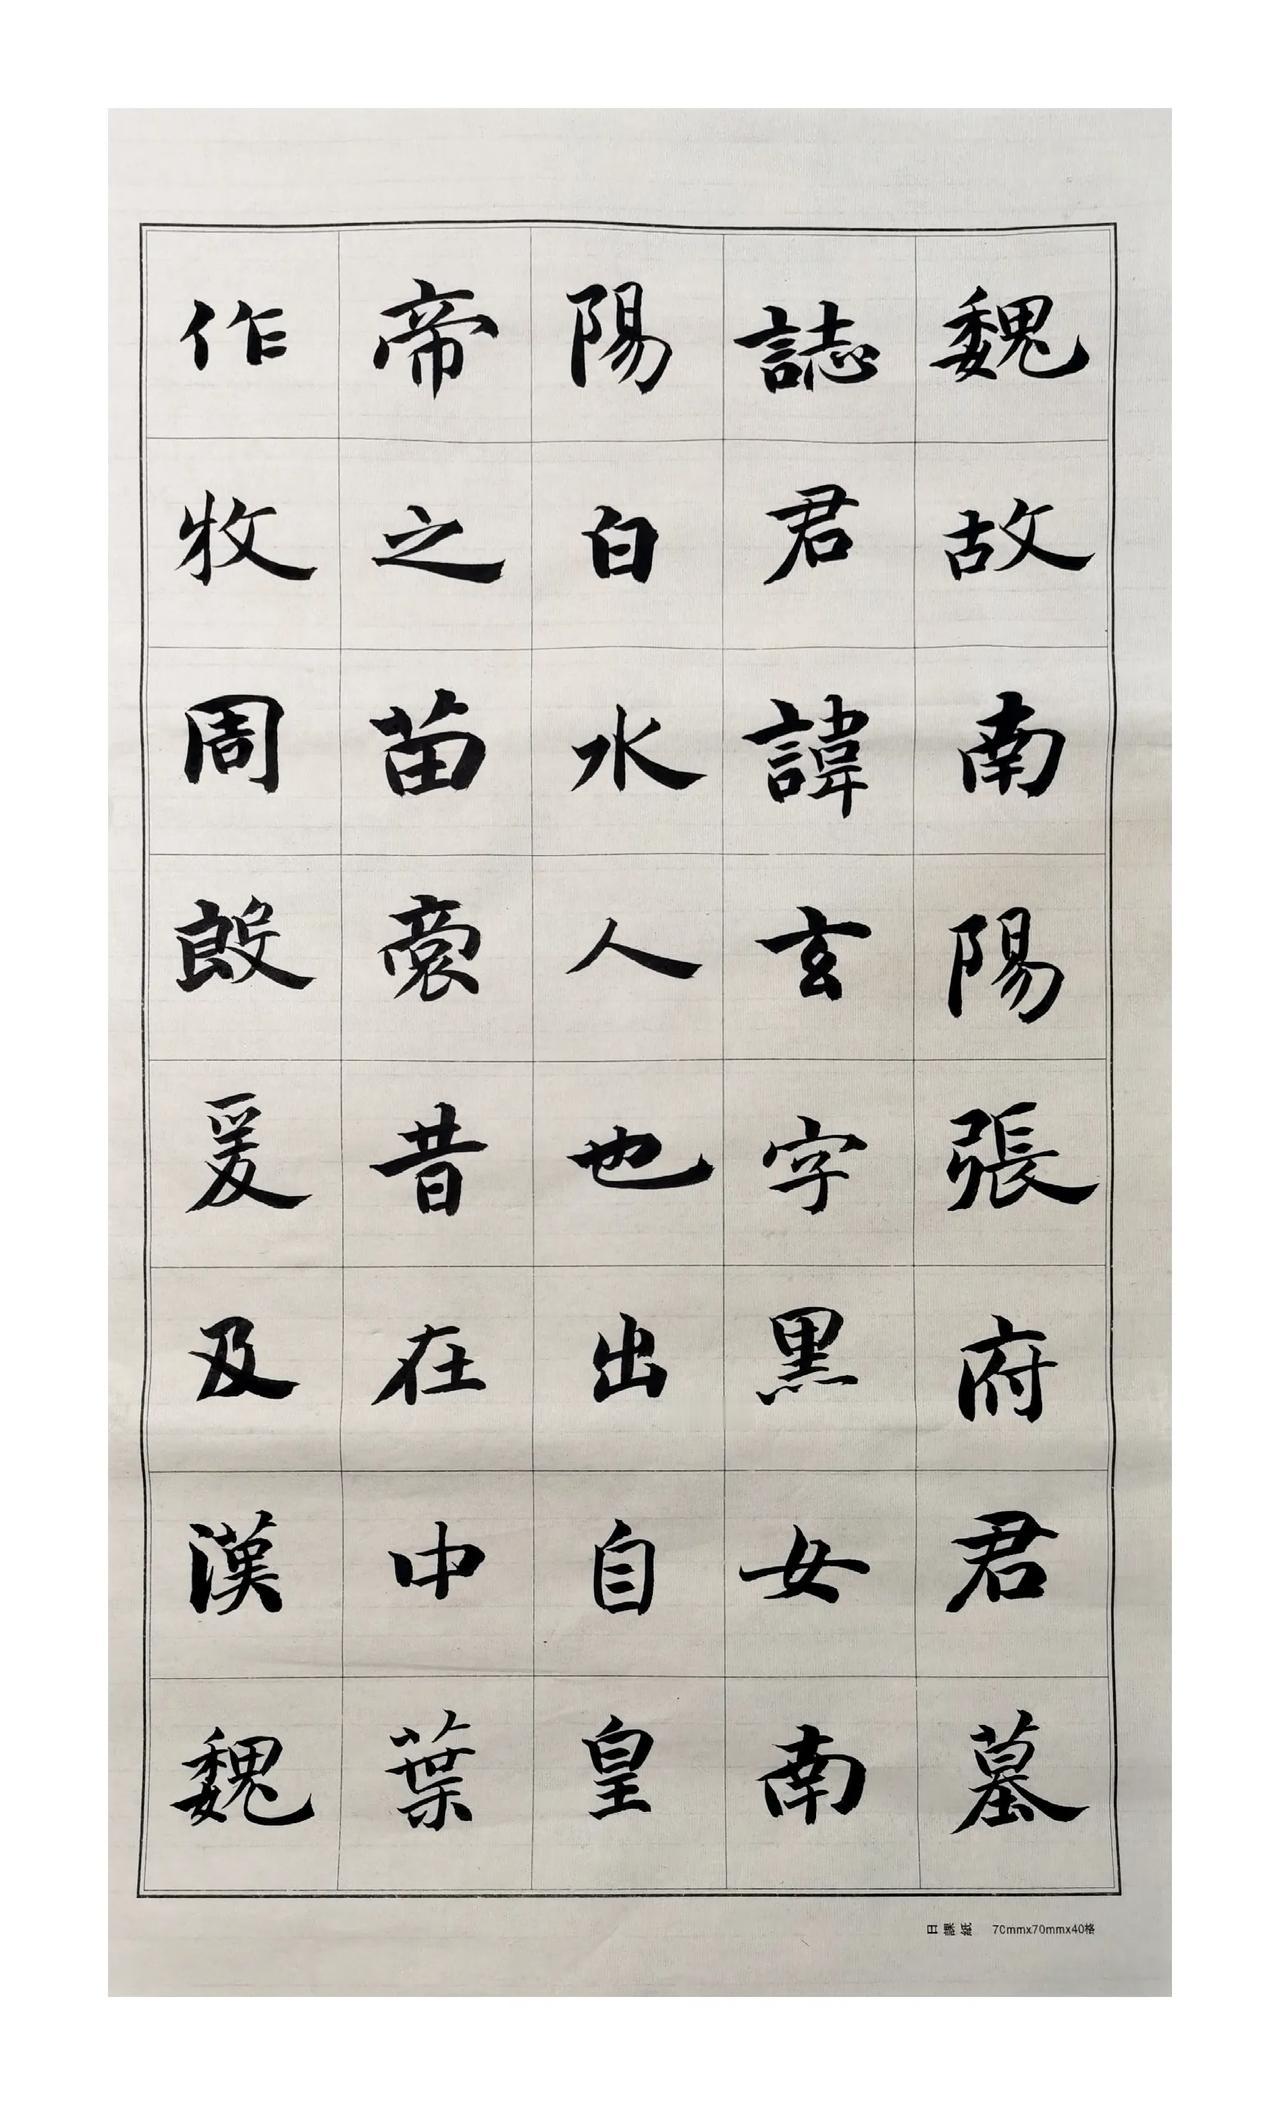 魏故南陽張府君墓
誌君諱玄字黑女南
陽白水人也出自皇
帝之苗裔昔在中葉
作牧周殷爰及漢魏
日課紙 70mmx70mmx40格